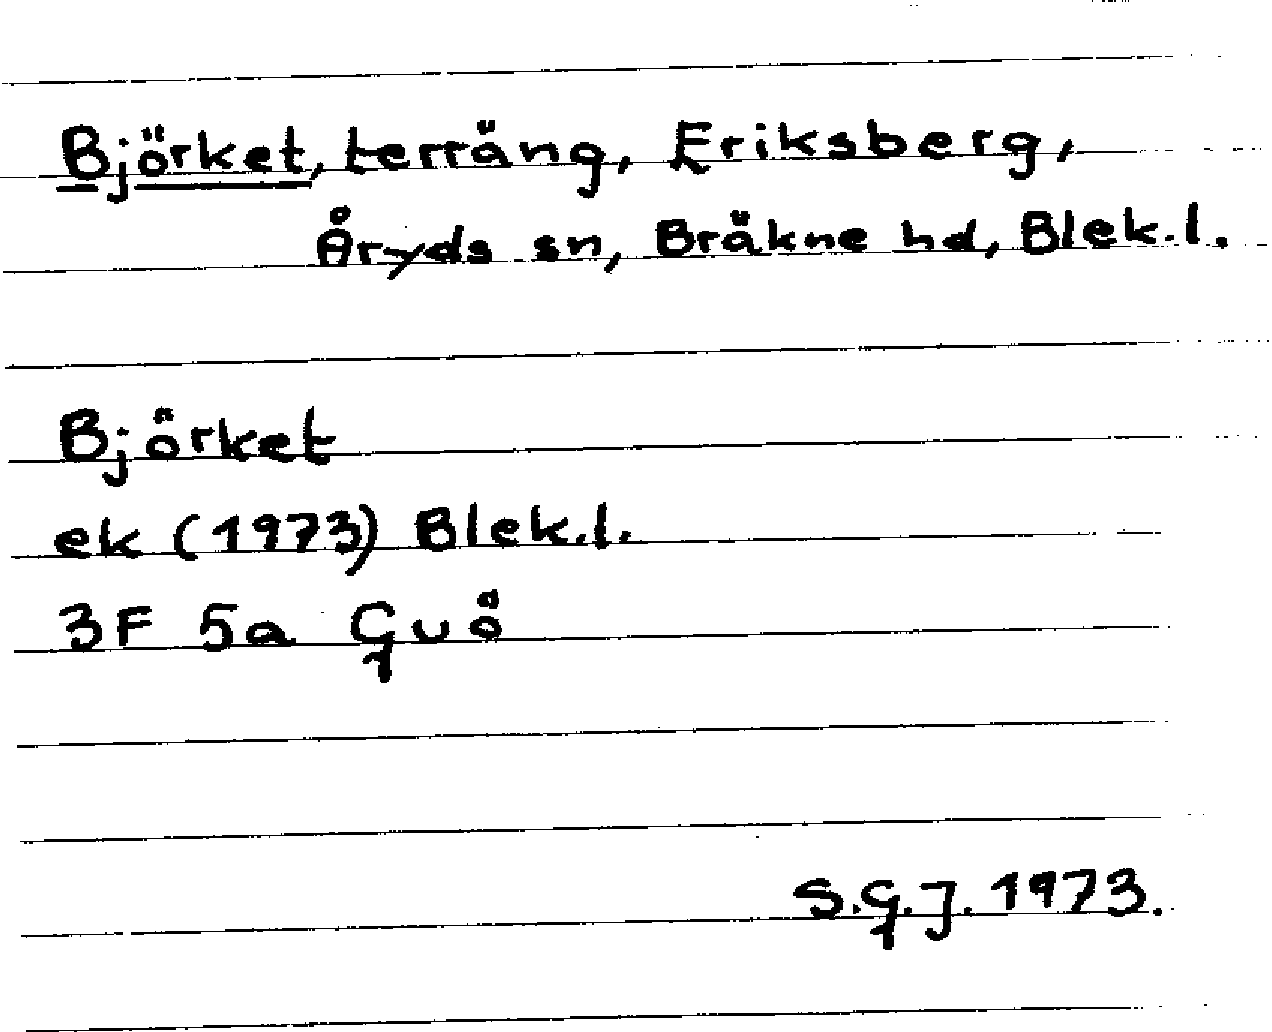 Björket, terräng, Eriksberg,
Åryds sn, Bräkne hd, Blek.l.
Björket
ek (1973) Blek.l.
3F 5a Guö
S.G.J. 1973.